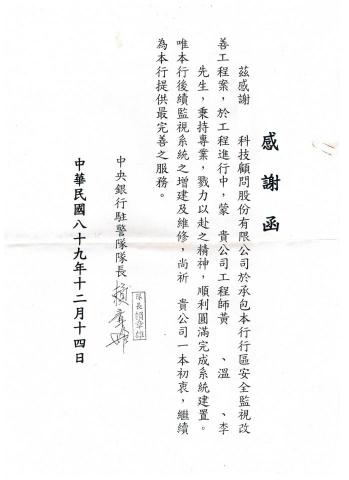 感謝函
茲感謝　　科技顧問股份有限公司於承包本行行區安全監視改
善工程案，於工程進行中，蒙　貴公司工程師黃　　、溫　　、李
先生，秉持專業，戮力以赴之精神，順利圓滿完成系統建置。
唯本行後續監視系統之增建及維修，尚祈　貴公司一本初衷，繼續
為本行提供最完善之服務。
中央銀行駐警隊隊長
中華民國八十九年十二月十四日